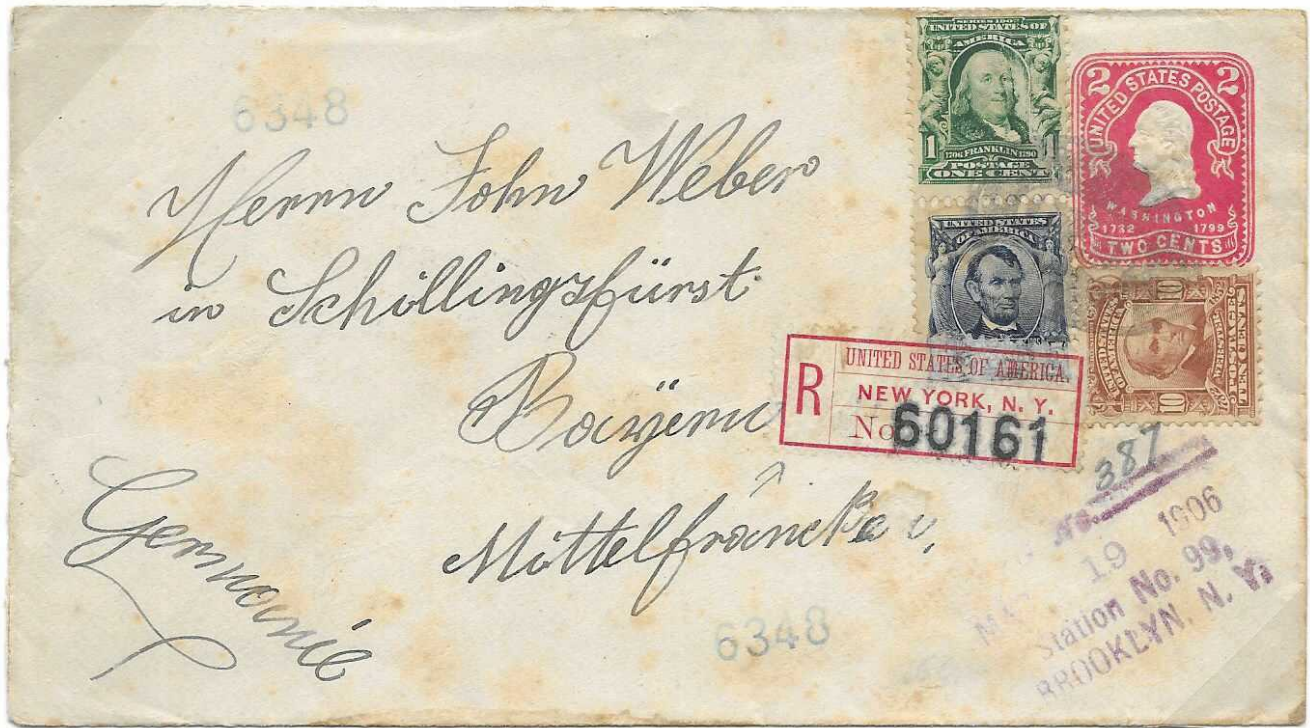 6348
Herrn John Weber
in Schillingsfürst.
Bayern
Mittelfrancken,
Germanie
6348
SERIES 1902
UNITED STATES OF
AMERICA
1
1706 FRANKLIN 1790
POSTAGE
ONE CENT
UNITED STATES
OF AMERICA
2 2
UNITED STATES POSTAGE
WASHINGTON
1732 1799
TWO CENTS
10 10
UNITED STATES
OF AMERICA
POSTAGE
TEN CENTS
R
UNITED STATES OF AMERICA.
NEW YORK, N. Y.
No 60161
387
No.
19 1906
Station No. 99,
BROOKLYN, N. Y.